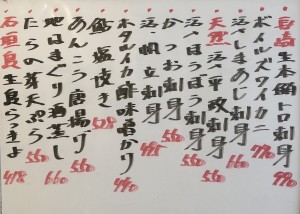 自島生本鮪トロ刺身 990
ボイルズワイカニ 770
活〆しまあじ刺身 660
天然活〆平政刺身 550
活〆ほうぼう刺身 550
かつお刺身 550
活〆帆立刺身 495
鮎塩焼き 528
ホタルイカ酢味噌かけ 440
あんこう唐揚げ 550
地はまぐり酒蒸し 660
たらの芽天ぷら 550
石垣島生島らっきょ 418